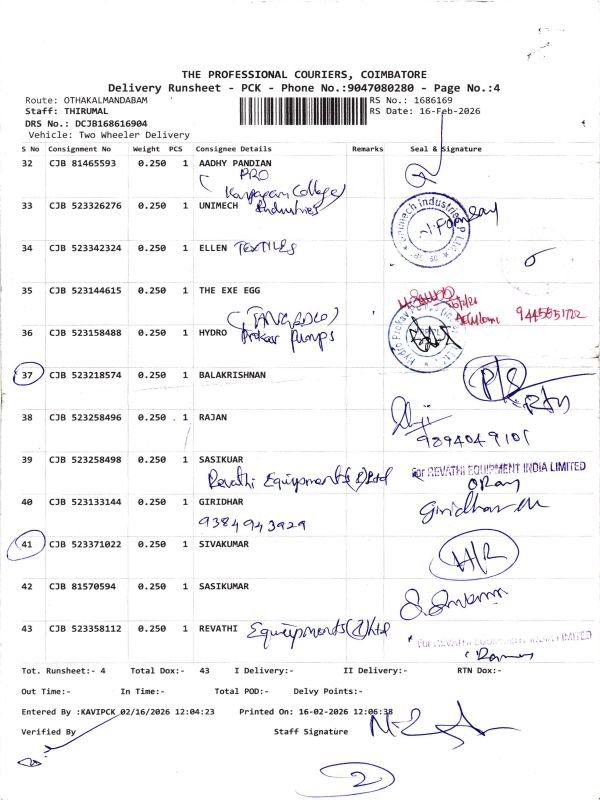 THE PROFESSIONAL COURIERS, COIMBATORE
Delivery Runsheet - PCK - Phone No.:9047080280 - Page No.:4
Route: OTHAKALMANDABAM RS No.: 1686169
Staff: THIRUMAL RS Date: 16-Feb-2026
DRS No.: DCJB168616904
Vehicle: Two Wheeler Delivery
S No Consignment No Weight PCS Consignee Details Remarks Seal & Signature
32 CJB 81465593 0.250 1 AADHY PANDIAN
PRO
Karpagam College
33 CJB 523326276 0.250 1 UNIMECH Industries
Unimech Industries
34 CJB 523342324 0.250 1 ELLEN TEXTILES
35 CJB 523144615 0.250 1 THE EXE EGG
(TANGEDCO)
9445851722
36 CJB 523158488 0.250 1 HYDRO Prokav Pumps
Hydro Prokav
37 CJB 523218574 0.250 1 BALAKRISHNAN
P/S
38 CJB 523258496 0.250 1 RAJAN
9894049101
39 CJB 523258498 0.250 1 SASIKUAR
Revathi Equipments (I) Ltd
For REVATHI EQUIPMENT INDIA LIMITED
40 CJB 523133144 0.250 1 GIRIDHAR
9384943929
Giridharan
41 CJB 523371022 0.250 1 SIVAKUMAR
H/R
42 CJB 81570594 0.250 1 SASIKUMAR
43 CJB 523358112 0.250 1 REVATHI Equipments (I) Ltd
For REVATHI EQUIPMENT INDIA LIMITED
Tot. Runsheet:- 4 Total Dox:- 43 I Delivery:- II Delivery:- RTN Dox:-
Out Time:- In Time:- Total POD:- Delvy Points:-
Entered By :KAVIPCK 02/16/2026 12:04:23 Printed On: 16-02-2026 12:06:38
Verified By Staff Signature
2